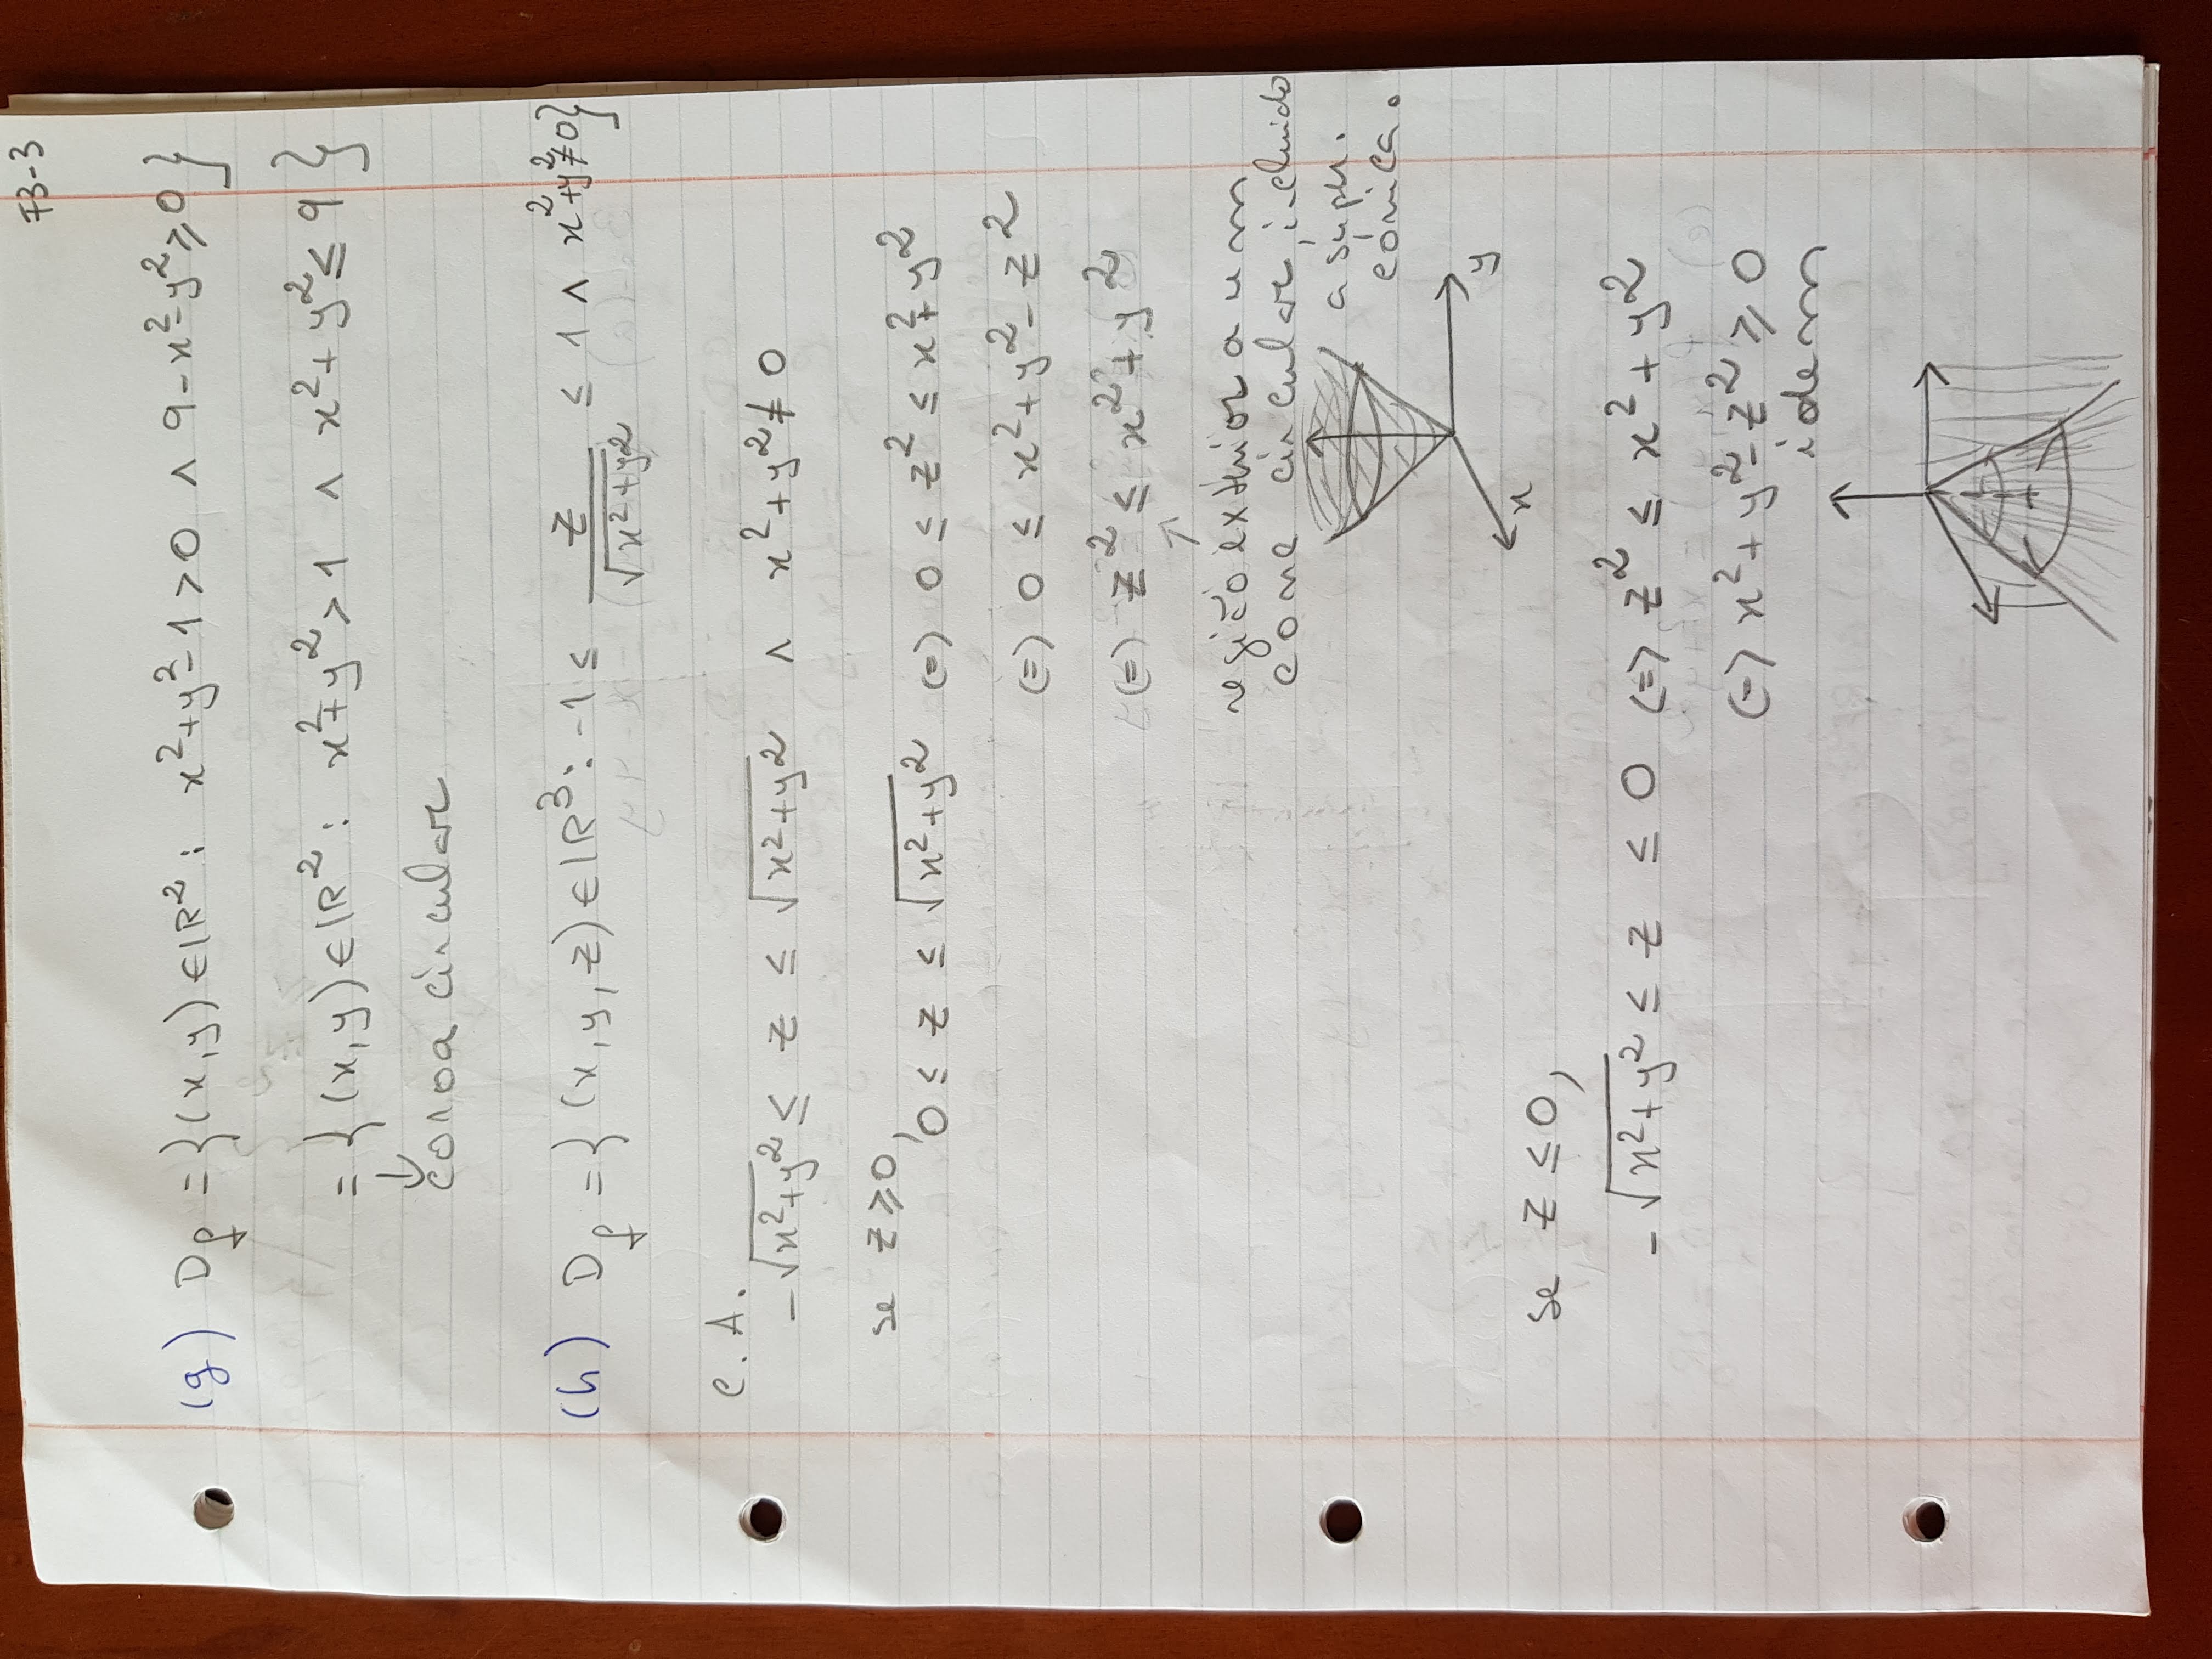 F3-3
(g) Df = {(x,y) ∈ IR² : x²+y²-1 > 0 ∧ 9-x²-y² ≥ 0}
= {(x,y) ∈ IR² : x²+y² > 1 ∧ x²+y² ≤ 9}
↓
coroa circular
(h) Df = {(x,y,z) ∈ IR³ : -1 ≤ z/√(x²+y²) ≤ 1 ∧ x²+y² ≠ 0}
C.A.
-√(x²+y²) ≤ z ≤ √(x²+y²) ∧ x²+y² ≠ 0
se z ≥ 0,
0 ≤ z ≤ √(x²+y²) (=) 0 ≤ z² ≤ x²+y²
(=) 0 ≤ x²+y²-z²
(=) z² ≤ x²+y²
↑
região exterior a um
cone circular, incluido
a super.
cónica.
y
x
se z ≤ 0,
-√(x²+y²) ≤ z ≤ 0 (=) z² ≤ x²+y²
(=) x²+y²-z² ≥ 0
idem